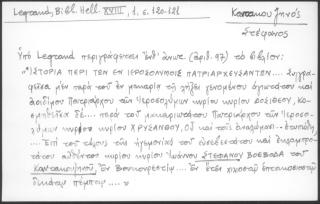 Legrand, Bibl. Hell. XVIII, 1, σ. 120-121
Καντακουζηνός
Στέφανος
Ὑπὸ Legrand περιγράφεται ὑπ' ἀριθ. (ἀριθ. 97) τὸ βιβλίον:
"ἹΣΤΟΡΙΑ ΠΕΡΙ ΤΩΝ ΕΝ ΙΕΡΟΣΟΛΥΜΟΙΣ ΠΑΤΡΙΑΡΧΕΥΣΑΝΤΩΝ.... Συγγρα-
φεῖσα μὲν παρὰ τοῦ ἐν μακαρίᾳ τῇ λήξει γενομένου ἁγιωτάτου καὶ
ἀοιδίμου Πατριάρχου τῶν Ἱεροσολύμων κυρίου κυρίου ΔΟΣΙΘΕΟΥ, Κο-
σμηθεῖσα δὲ.... παρὰ τοῦ μακαριωτάτου Πατριάρχου τῶν Ἱεροσο-
λύμων κυρίου κυρίου ΧΡΥΣΑΝΘΟΥ, Οὗ καὶ τοῖς ἀναλώμασι... ἐτυπώθη
.... Ἐπὶ τοῦ τέλους τῆς ἡγεμονίας τοῦ εὐσεβεστάτου καὶ ἐκλαμπρο-
τάτου αὐθέντου κυρίου κυρίου Ἰωάννου ΣΤΕΦΑΝΟΥ ΒΟΕΒΟΔΑ τοῦ
Καντακουζηνοῦ, Ἐν Βουκουρεστίῳ.... Ἐν ἔτει χιλιοστῷ ἑπτακοσιοστῷ
δεκάτῳ πέμπτῳ.... "